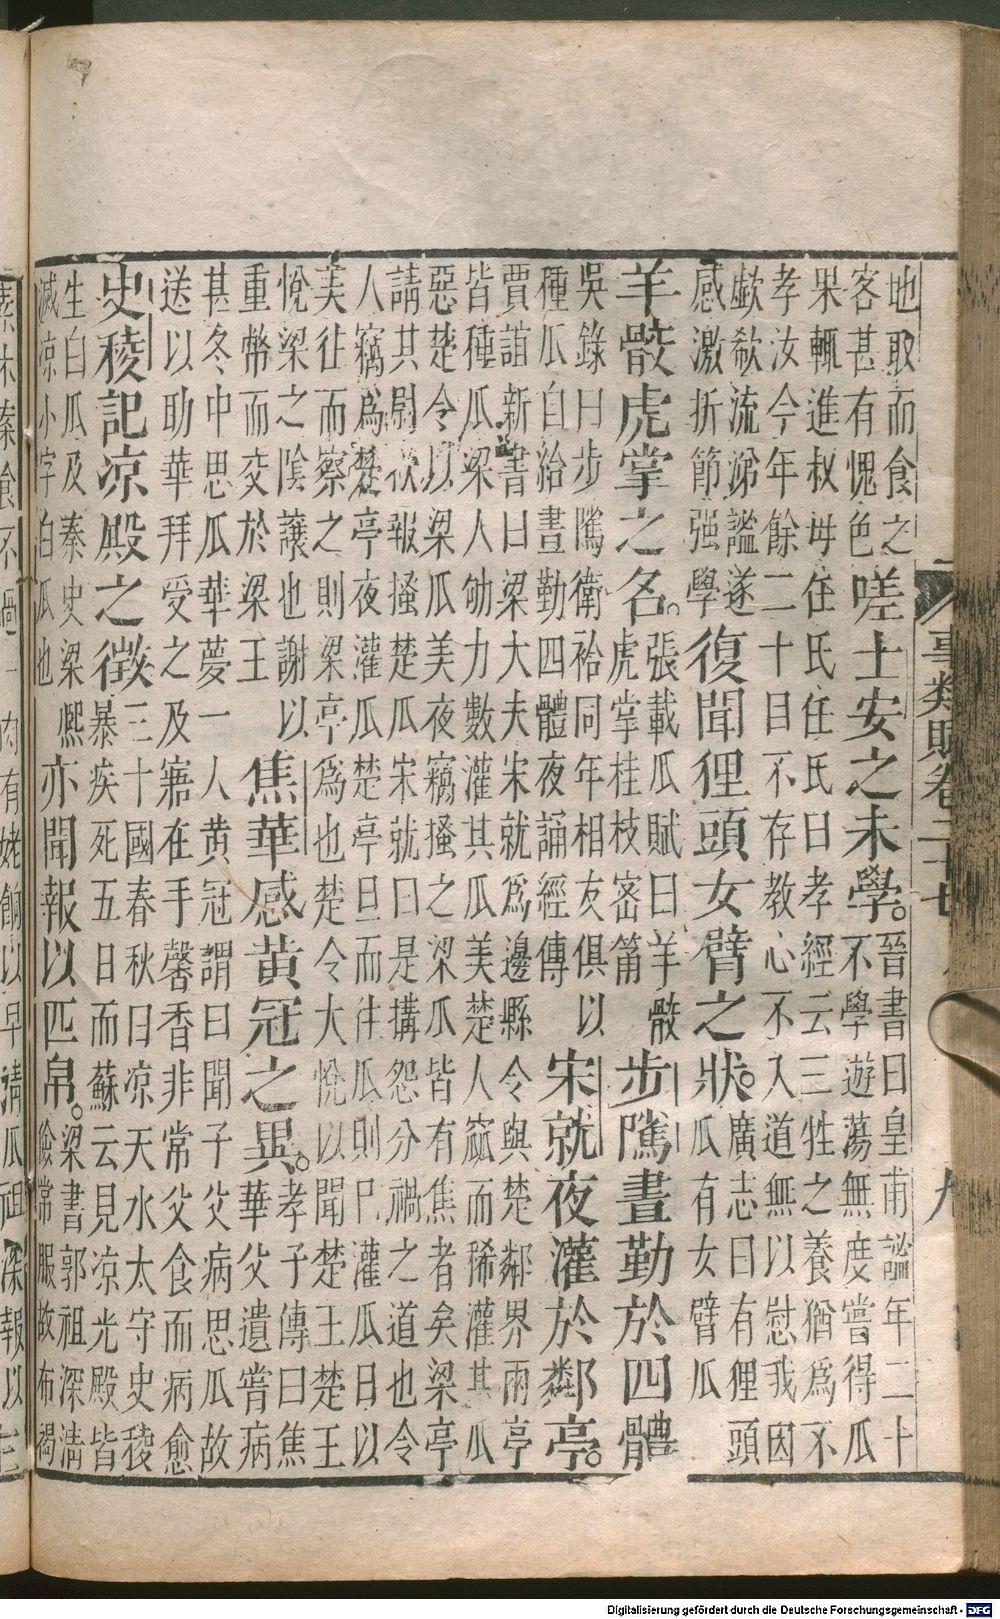 事類賦卷二十七
九
地取而食之
客甚有愧色
嗟士安之未學。
晉書曰皇甫謐年二十
不學遊蕩無度嘗得瓜
果輒進叔母任氏任氏曰孝經云三牲之養猶爲不
孝汝今年餘二十目不存教心不入道無以慰我因
歔欷流涕謐遂
感激折節强學
復聞狸頭女臂之狀。
廣志曰有狸頭
瓜有女臂瓜
羊骹虎掌之名。
張載瓜賦曰羊骹
虎掌桂枝密筩
步隲晝勤於四體
吳錄曰步隲衛袷同年相友俱以
種瓜自給晝勤四體夜誦經傳
宋就夜灌於鄰亭。
賈誼新書曰梁大夫宋就爲邊縣令與楚鄰界兩亭
皆種瓜梁人劬力數灌其瓜美楚人窳而稀灌其瓜
惡楚令以梁瓜美夜竊搔之梁瓜皆有焦者矣梁亭
請其尉欲報搔楚瓜宋就曰是搆怨分禍之道也令
人竊爲楚亭夜灌瓜楚亭旦而往瓜則巳灌瓜日以
美往而察之則梁亭爲也楚令大悅以聞楚王楚王
悅梁之陰讓也謝以
重幣而交於梁王
焦華感黃冠之異。
孝子傳曰焦
華父遺嘗病
甚冬中思瓜華夢一人黃冠謂曰聞子父病思瓜故
送以助華拜受之及寤在手馨香非常父食而病愈
史稜記凉殿之徵
三十國春秋曰凉天水太守史稜
暴疾死五日而蘇云見凉光殿皆
生白瓜及秦史梁熈
滅凉小字白瓜也
亦聞報以匹帛。
梁書郭祖深清
儉常服故布褐
素木案食不過一肉有姥餉以早清瓜祖深報以
Digitalisierung gefördert durch die Deutsche Forschungsgemeinschaft - DFG